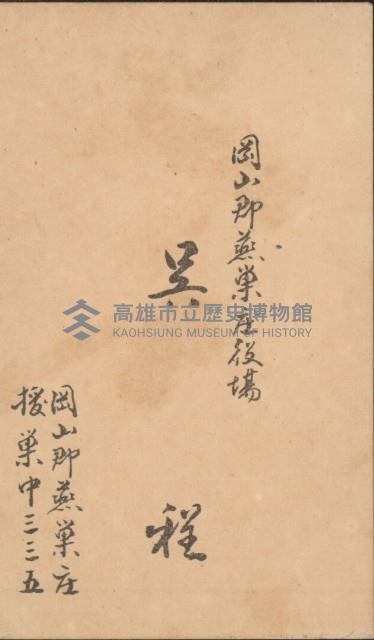 岡山郡燕巢庄役場
吳
程
岡山郡燕巢庄
援巢中三三五
高雄市立歷史博物館
KAOHSIUNG MUSEUM OF HISTORY